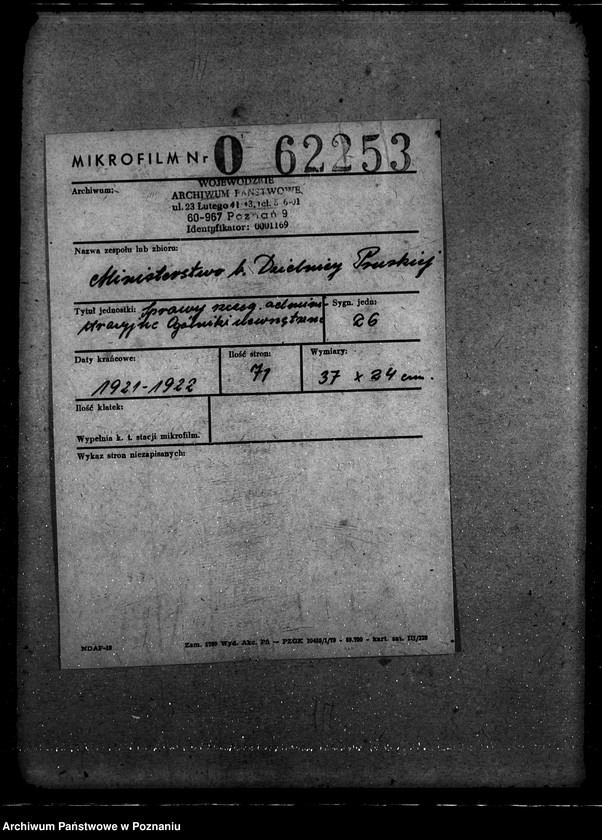 MIKROFILM Nr 0 62253
Archiwum:
WOJEWÓDZKIE
ARCHIWUM PAŃSTWOWE
ul. 23 Lutego 41/43, tel. 5
60-967 Poznań 9
Identyfikator: 0001169
Nazwa zespołu lub zbioru:
Ministerstwo b. Dzielnicy Pruskiej
Tytuł jednostki: Sprawy
Okólniki wewnętrzne
Sygn. jedn:
26
Daty krańcowe:
1921-1922
Ilość stron:
71
Wymiary:
37 x 24 cm.
Ilość klatek:
Wypełnia k. t. stacji mikrofilm.
Wykaz stron niezapisanych:
NDAP-13
Zam. Wyd. Akc. Pń — PZGK
kart. sat. III/220
Archiwum Państwowe w Poznaniu